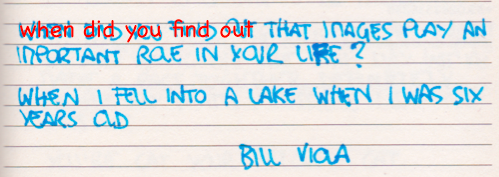 when did you find out THAT IMAGES PLAY AN
IMPORTANT ROLE IN YOUR LIFE ?
WHEN I FELL INTO A LAKE WHEN I WAS SIX
YEARS OLD
BILL VIOLA